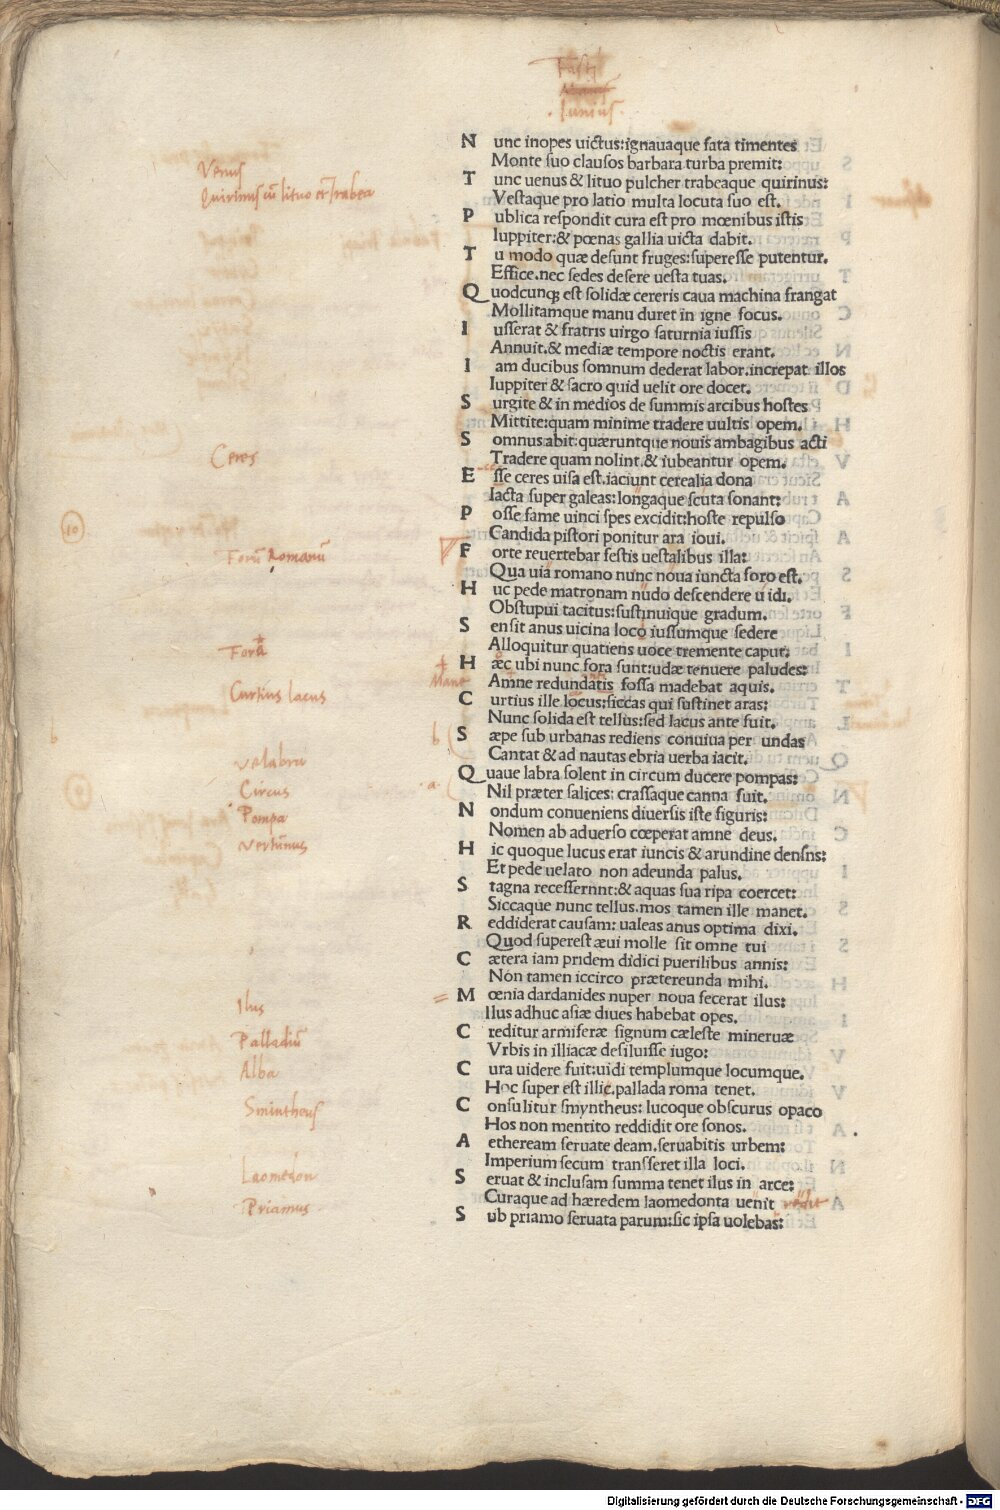 Fasti
Iunius.
N unc inopes uictus:ignauaque fata timentes
Monte suo clausos barbara turba premit:
T unc uenus & lituo pulcher trabeaque quirinus:
Vestaque pro latio multa locuta suo est.
P ublica respondit cura est pro mœnibus istis
Iuppiter:& pœnas gallia uicta dabit.
T u modo quæ desunt fruges:superesse putentur.
Effice.nec sedes desere uesta tuas.
Q uodcunq; est solidæ cereris caua machina frangat
Mollitamque manu duret in igne focus.
I usserat & fratris uirgo saturnia iussis
Annuit.& mediæ tempore noctis erant.
I am ducibus somnum dederat labor.increpat illos
Iuppiter & sacro quid uelit ore docet.
S urgite & in medios de summis arcibus hostes
Mittite:quam minime tradere uultis opem.
S omnus abit:quæruntque nouis ambagibus acti
Tradere quam nolint.& iubeantur opem.
E sse ceres uisa est.iaciunt cerealia dona
Iacta super galeas:longaque scuta sonant:
P osse fame uinci spes excidit:hoste repulso
Candida pistori ponitur ara ioui.
F orte reuertebar festis uestalibus illa:
Qua uia romano nunc noua iuncta foro est.
H uc pede matronam nudo descendere uidi.
Obstupui tacitus:sustinuique gradum.
S ensit anus uicina loco iussumque sedere
Alloquitur quatiens uoce tremente caput.
H æc ubi nunc fora sunt:udæ tenuere paludes:
Amne redundatis fossa madebat aquis.
C urtius ille locus:siccas qui sustinet aras:
Nunc solida est tellus:sed lacus ante fuit.
S æpe sub urbanas rediens conuiua per undas
Cantat & ad nautas ebria uerba iacit.
Q uaue labra solent in circum ducere pompas:
Nil præter salices: crassaque canna fuit.
N ondum conueniens diuersis iste figuris:
Nomen ab aduerso cœperat amne deus.
H ic quoque lucus erat iuncis & arundine densns:
Et pede uelato non adeunda palus.
S tagna recessernnt:& aquas sua ripa coercet:
Siccaque nunc tellus.mos tamen ille manet.
R eddiderat causam: ualeas anus optima dixi.
Quod superest æui molle sit omne tui
C ætera iam pridem didici puerilibus annis:
Non tamen iccirco prætereunda mihi.
M œnia dardanides nuper noua fecerat ilus:
Ilus adhuc asiæ diues habebat opes.
C reditur armiferæ signum cæleste mineruæ
Vrbis in illiacæ desiluisse iugo:
C ura uidere fuit:uidi templumque locumque.
Hoc super est illic.pallada roma tenet.
C onsulitur smyntheus: lucoque obscurus opaco
Hos non mentito reddidit ore sonos.
A etheream seruate deam.seruabitis urbem:
Imperium secum transseret illa loci.
S eruat & inclusam summa tenet ilus in arce:
Curaque ad hæredem laomedonta uenit redit
S ub priamo seruata parum:sic ipsa uolebas:
Venus
Quirinus cū lituo et trabea
Ceres
10
Forū Romanū
Fora
Curtius lacus
Mane
b
b
velabra
Circus
a
Pompa
vertūnus
Ilus
Palladiū
Alba
Smintheus
Laomedon
Priamus
Digitalisierung gefördert durch die Deutsche Forschungsgemeinschaft - DFG